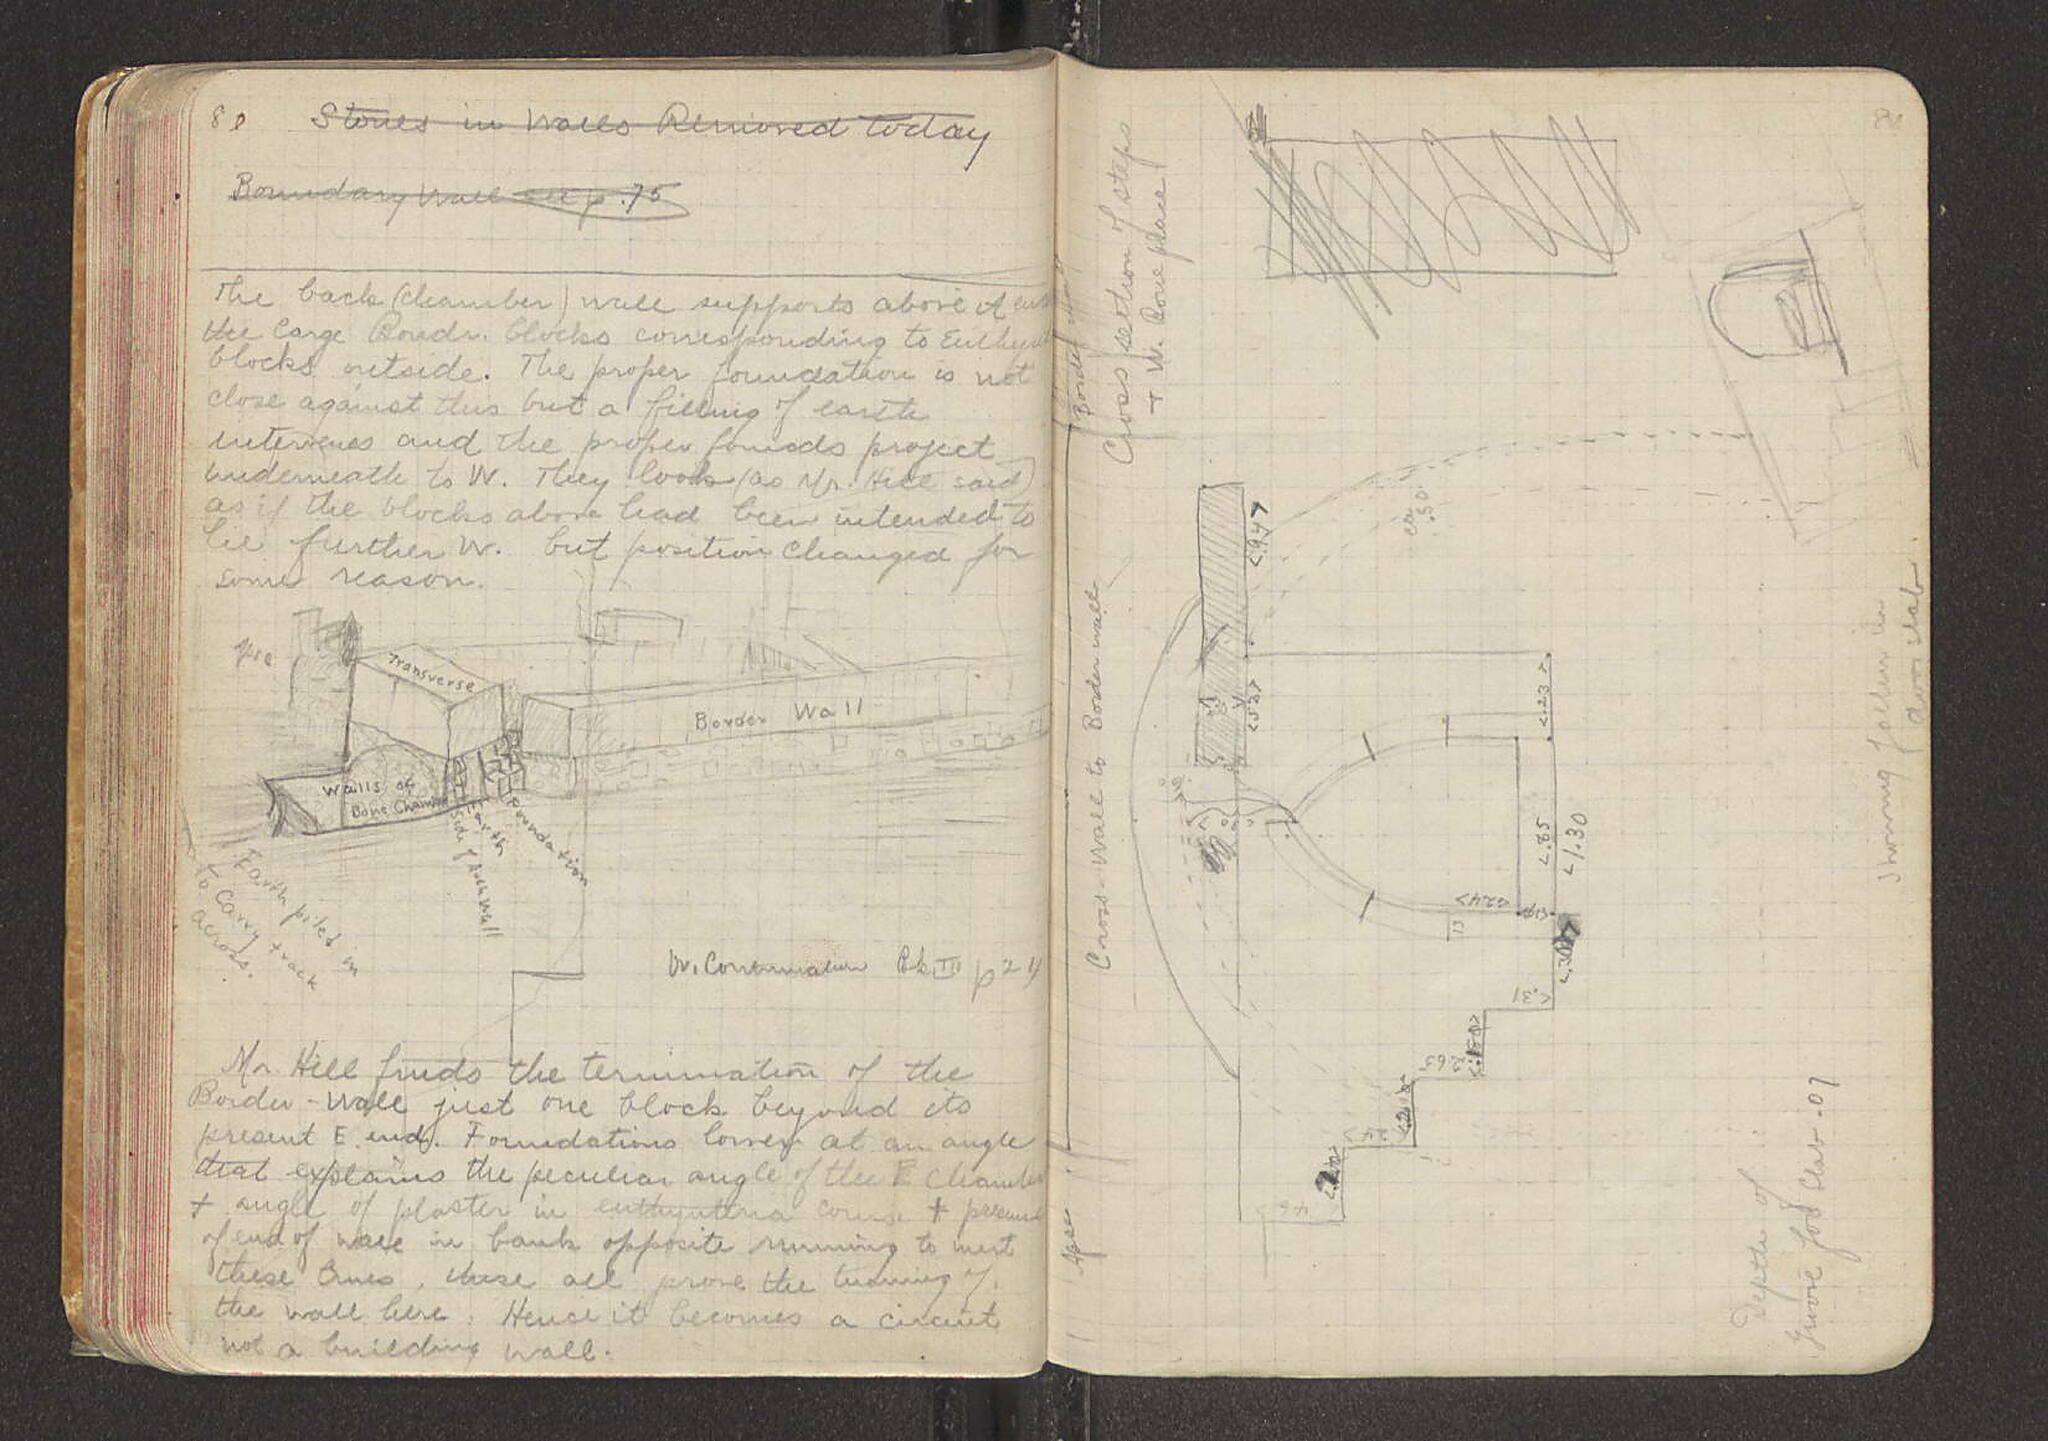 80
Stones in Walls Removed today
Boundary Wall see p. 75
The back (chamber) wall supports above it
the large Boudr. blocks corresponding to
blocks outside. The proper foundation is not
close against this but a filling of earth
intervenes and the proper founds project
underneath to W. They look (as Mr. Hill said)
as if the blocks above had been intended to
lie further W. but position changed for
some reason.
Apse
Transverse
Border Wall
Walls of
Bone Chamber
Earth
Side of Back Wall
Foundation
Earth piled in
to carry track
across.
W. Continuation Bk III p 24
Mr. Hill finds the termination of the
Border-Wall just one block beyond its
present E. end. Foundations lower at an angle
that explains the peculiar angle of the B Chamber
+ angle of plaster in euthynteria course +
of end of wall in bank opposite running to meet
these lines, these all prove the turning of
the wall here. Hence it becomes a circuit
not a building wall.
Cross section of steps
+ W. Bone place
Border
Cross-Wall to Border wall
Apse
<.947
ca
.50
<.53>
<.23>
<.85
<1.30
<.24>
.13
.31
Depth of
groove for slab .07
Showing
door slab